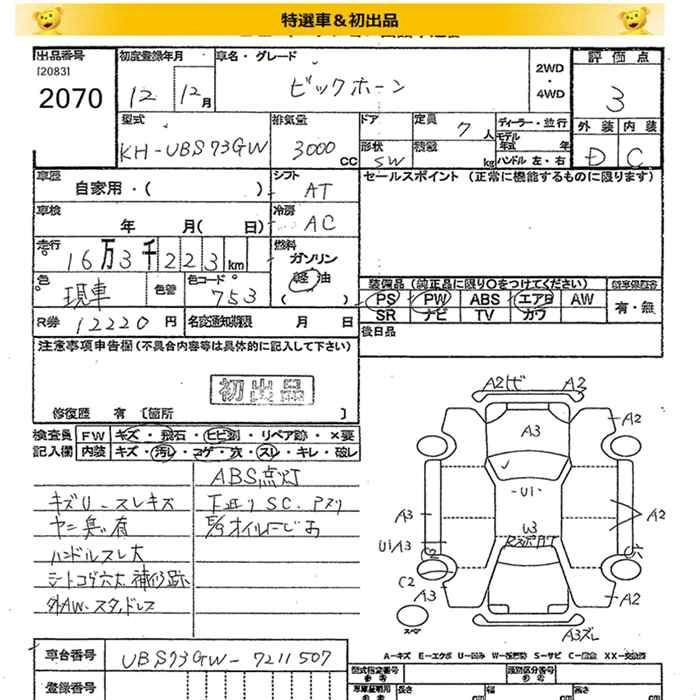 特選車&初出品
出品番号
[2083]
2070
初度登録年月
12 12月
車名・グレード
ビックホーン
2WD
・
4WD
評価点
3
外装 内装
D C
型式
KH-UBS73GW
排気量
3000 CC
ドア
形状
SW
定員
7人
積載
kg
ディーラー・並行
モデル年式 年
ハンドル 左・右
車歴
自家用・( )
シフト
AT
車検
年 月( 日)
冷房
AC
走行
16万3千223km
燃料
ガソリン
軽油
( )
色
現車
色替
色コード
753
R券 12220円
名変通知期限 月 日
セールスポイント(正常に機能するものに限ります)
装備品(純正品に限り○をつけてください)
PS PW ABS エアB AW
SR ナビ TV カワ
有・無
後日品
注意事項申告欄(不具合内容等は具体的に記入して下さい)
初出品
修復歴 有 [箇所 ]
検査員 FW キズ・飛石・ヒビ割・リペア跡・×要
記入欄 内装 キズ・汚レ・コゲ・穴・スレ・キレ・破レ
ABS点灯
キズU-スレキズ
下廻りSC.Pスリ
ヤニ臭有
オイルにじみ
ハンドルスレ大
シートコゲ穴大 補修跡
外AW-スタッドレス
A2トビ A2
A3
A2
-U1-
W3
A3
U1A3
A2
C2
A3
A2
スペア
A3ズレ
A-キズ E-エクボ U-凹み W-板金跡 S-サビ C-腐食 XX-交換済
車台番号 UBS73GW-7211507
登録番号
型式指定番号
類別区分番号
長さ 幅 高さ